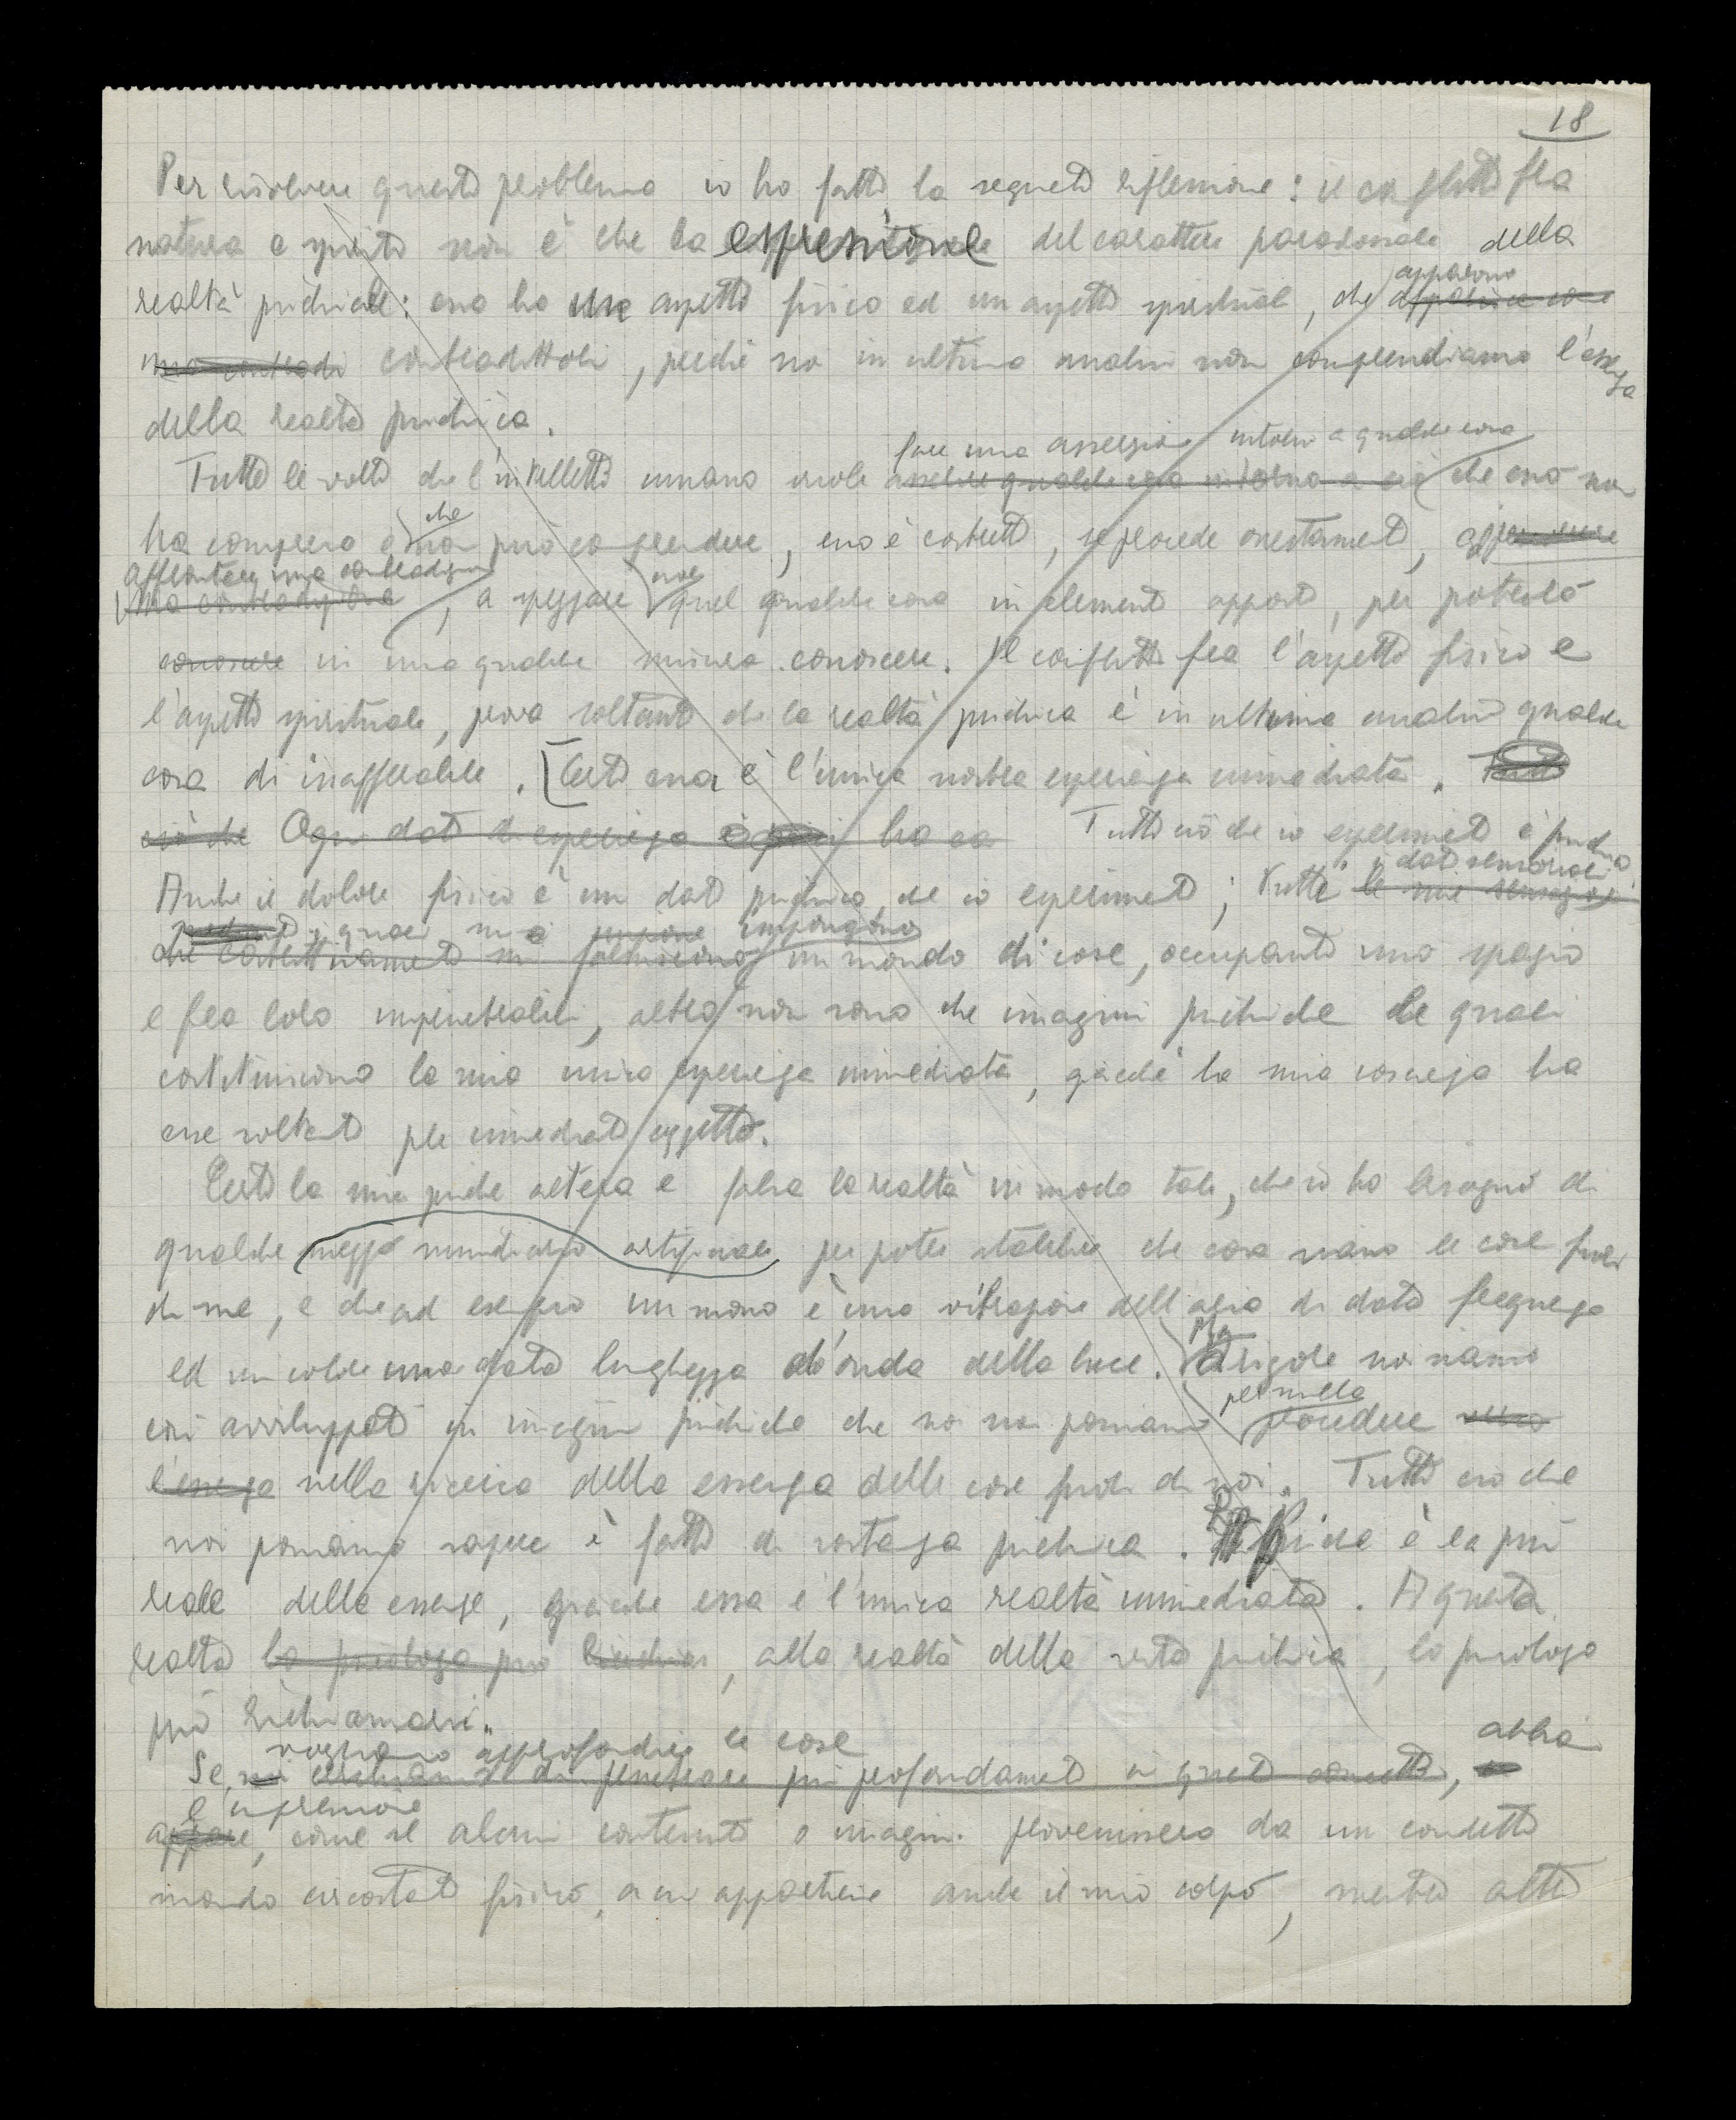 18
Per risolvere questo problema io ho fatto la seguente riflessione: il conflitto fra
natura e spirito non è che la espressione del carattere paradossale della
realtà psichica: essa ha un aspetto fisico ed un aspetto spirituale, che appaiono
contradittori, perché noi in ultima analisi non comprendiamo l'essenza
della realtà psichica.
fare una asserzione intorno a qualche cosa
Tutte le volte che l'intelletto umano vuole asserire qualche cosa intorno a ciò che esso non
ha compreso e che non può comprendere, esso è costretto, se procede onestamente, ad
affrontare una contradizione
una contradizione, a spezzare cioè quel qualche cosa in elementi opposti, per poterlo
conoscere in una qualche misura conoscere. Il conflitto fra l'aspetto fisico e
l'aspetto spirituale, prova soltanto che la realtà psichica è in ultima analisi qualche
cosa di inafferrabile. [Certo essa è l'unica nostra esperienza immediata.
ciò che Ogni dato di esperienza ha ca Tutto ciò che io esperimento è psichico
dati sensoriali
Anche il dolore fisico è un dato psichico, che io esperimento; tutti le mie sensazioni
i quali mi impongono
che costituiscono un mondo di cose, occupanti uno spazio
e fra loro impenetrabili, altro non sono che imagini psichiche le quali
costituiscono la mia unica esperienza immediata, giacché la mia coscienza ha
esse soltanto per immediato oggetto.
Certo la mia psiche altera e falsa la realtà in modo tale, che io ho bisogno di
qualche mezzo sussidiario artificiale per poter stabilire che cosa siano le cose fuori
di me, e che ad esempio un suono è una vibrazione dell'aria di data frequenza
ed un colore una data lunghezza d'onda della luce. Ma a rigore noi siamo
per nulla
così avviluppati in imagini psichiche che noi non possiamo procedere verso
l'essenza nella ricerca della essenza delle cose fuori di noi. Tutto ciò che
noi possiamo sapere è fatto di sostanza psichica. La Psiche è la più
reale delle essenze, giacché essa è l'unica realtà immediata. A questa
realtà lo psicologo può richiamarsi, alla realtà della vita psichica, lo psicologo
può richiamarsi.
vogliamo approfondire le cose abbiamo
Se noi cerchiamo di penetrare più profondamente in questo concetto,
l'impressione
appare, come se alcuni contenuti o imagini provenissero da un cosidetto
mondo circostante fisico, a cui appartiene anche il mio corpo, mentre altri